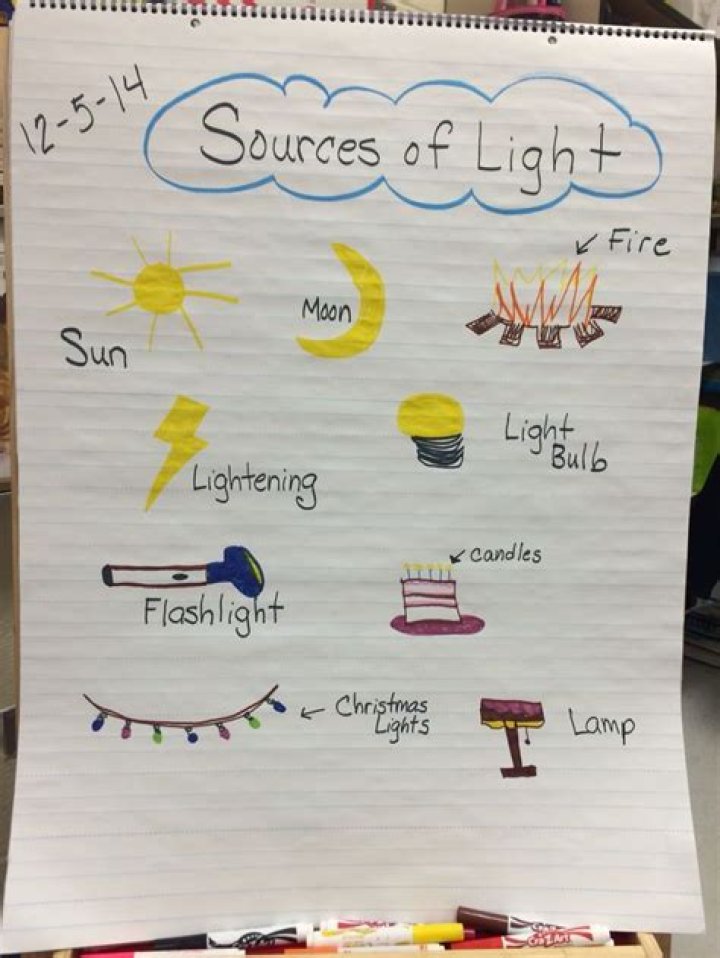 12-5-14
Sources of Light
Sun
Moon
Fire
Lightening
Light
Bulb
Flashlight
candles
Christmas
Lights
Lamp